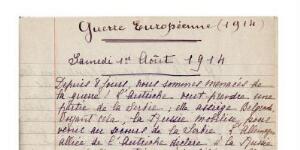 Guerre Européenne (1914
Samedi 1er Août 1914
Depuis 8 jours, nous sommes menacés de
la guerre ! L'Autriche veut prendre une
partie de la Serbie ; elle assiège Belgrade
Voyant cela, la Russie mobilise, pour
venir au secours de la Serbie. L'Allemagne
alliée de l'Autriche déclare à la Russie